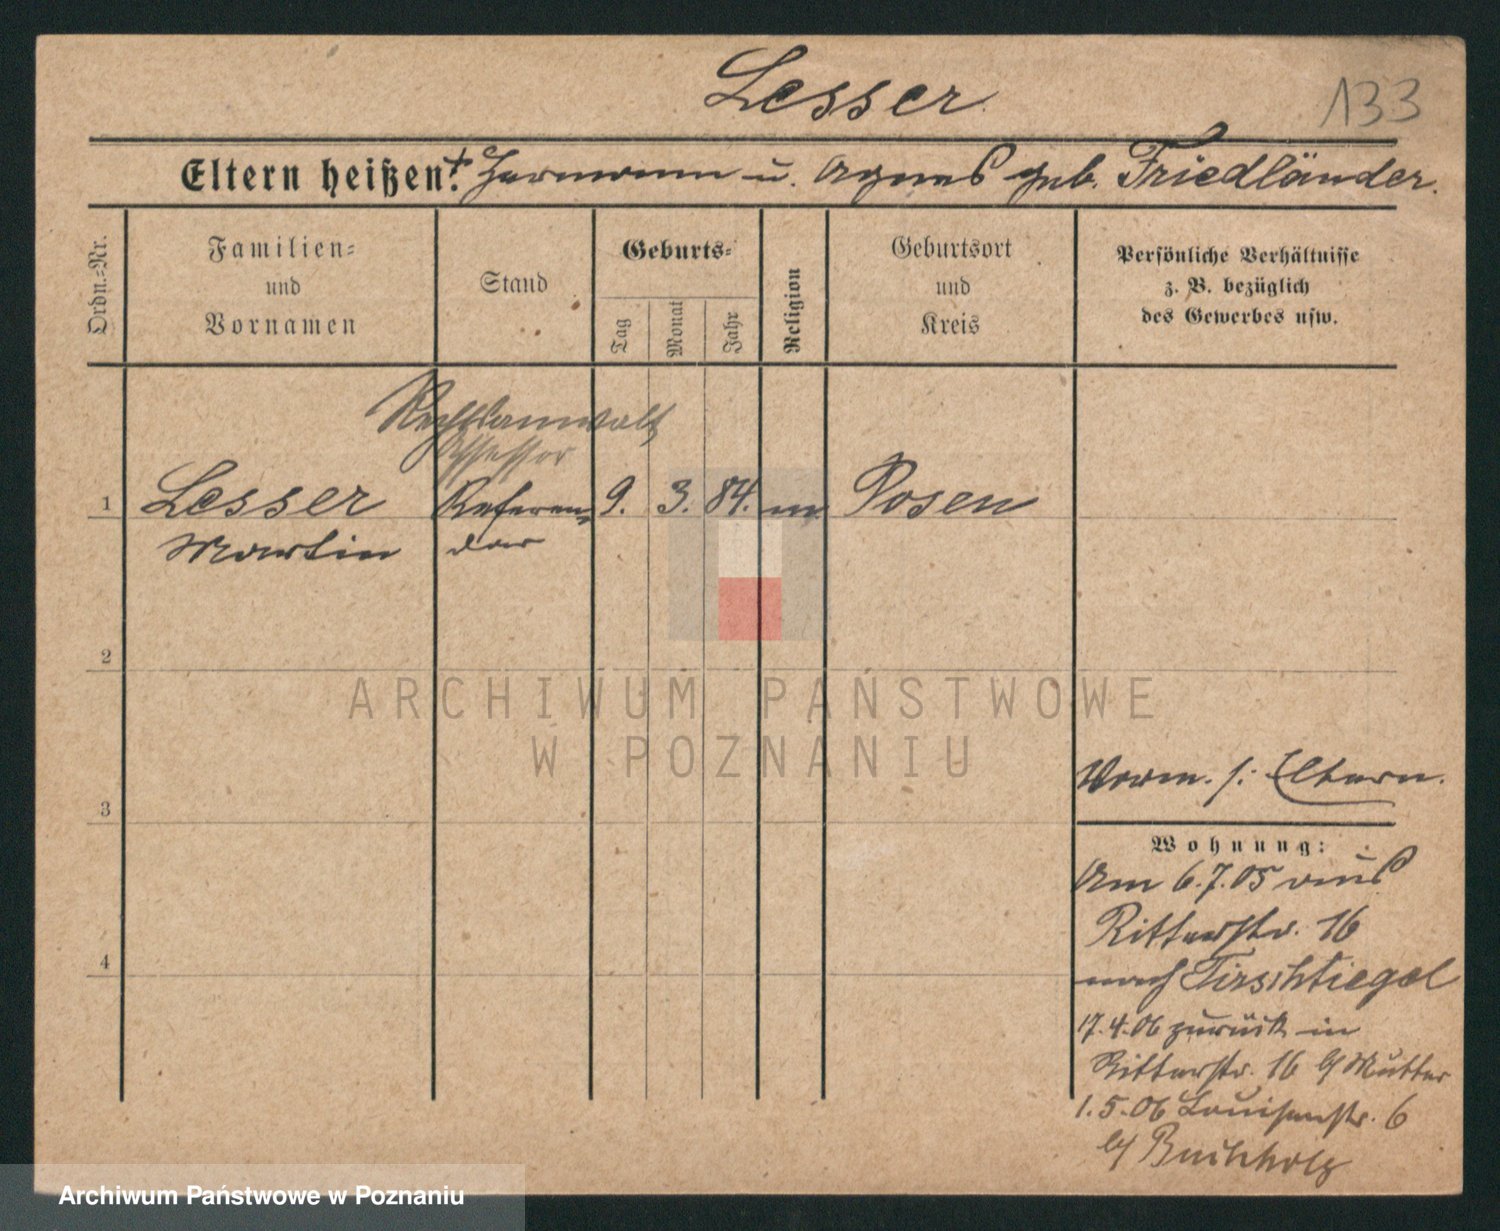 Lesser.
133
Eltern heißen: † Hermann u. Agnes geb. Friedländer.
Ordn.=Nr.
Familien=
und
Vornamen
Stand
Geburts=
Tag
Monat
Jahr
Religion
Geburtsort
und
Kreis
Persönliche Verhältnisse
z. B. bezüglich
des Gewerbes usw.
Rechtsanwalt
Assessor
1 Lesser Referen= 9. 3. 84. m Posen
Martin dar
2
ARCHIWUM PAŃSTWOWE
W POZNANIU
Vorm. s: Eltern.
3
Wohnung:
Am 6.7.05 aus
Ritterstr. 16
4
nach Tirschtiegel
17.4.06 zurück in
Ritterstr. 16 b/ Mutter
1.5.06 Louisenstr. 6
b/ Buchholz
Archiwum Państwowe w Poznaniu